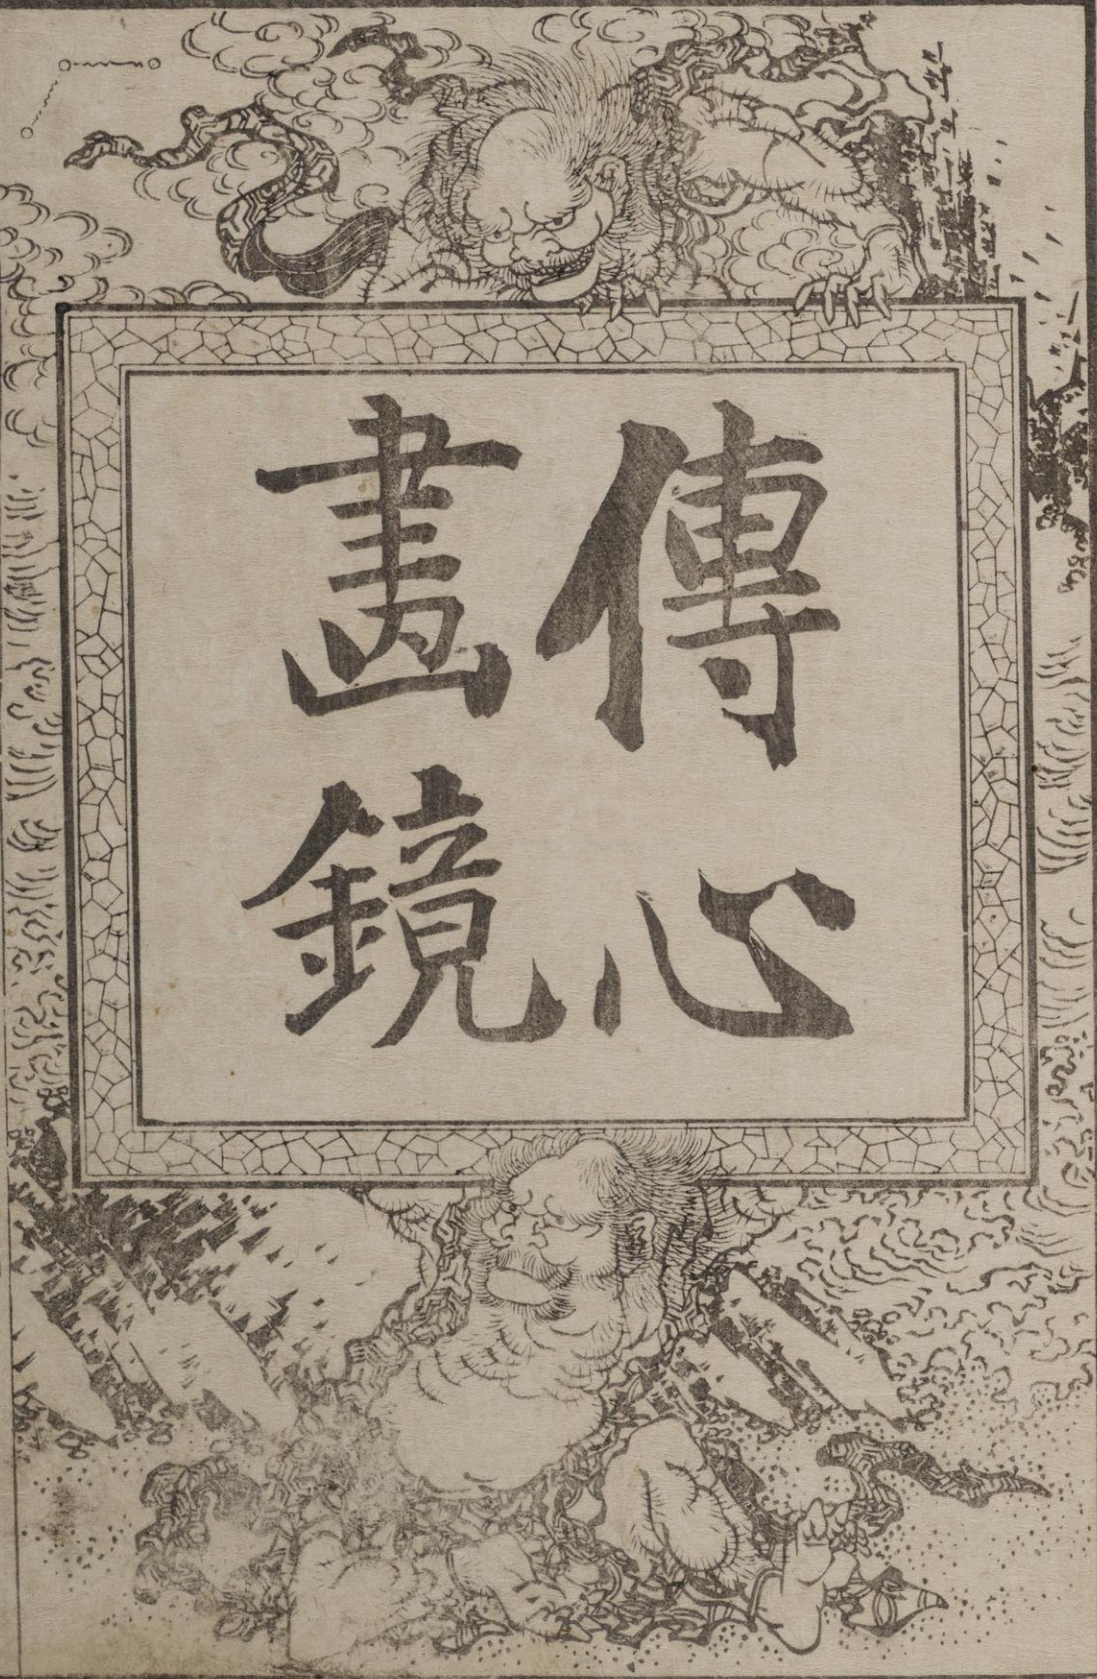 傳心
畫鏡